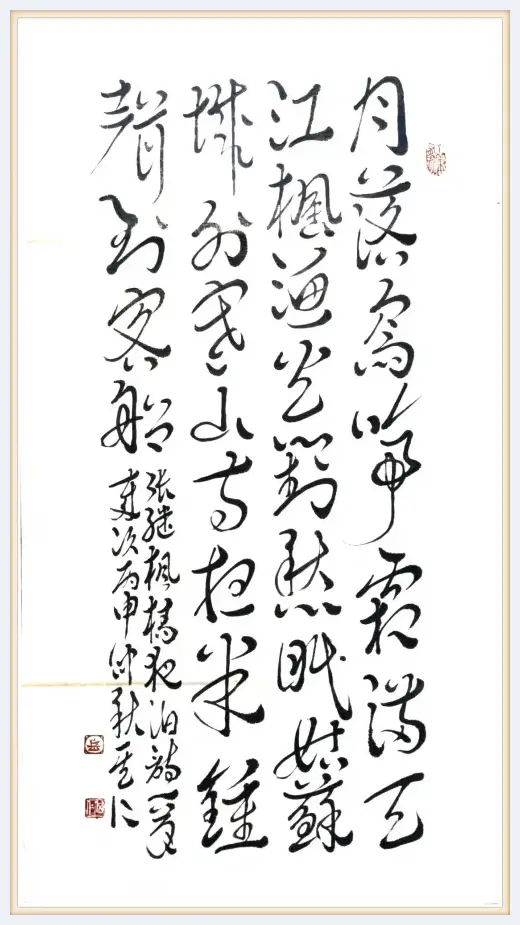 月落烏啼霜滿天
江楓漁火對愁眠姑蘇
城外寒山寺夜半鍾
聲到客船
張繼楓橋夜泊詩一首
歲次丙申仲秋